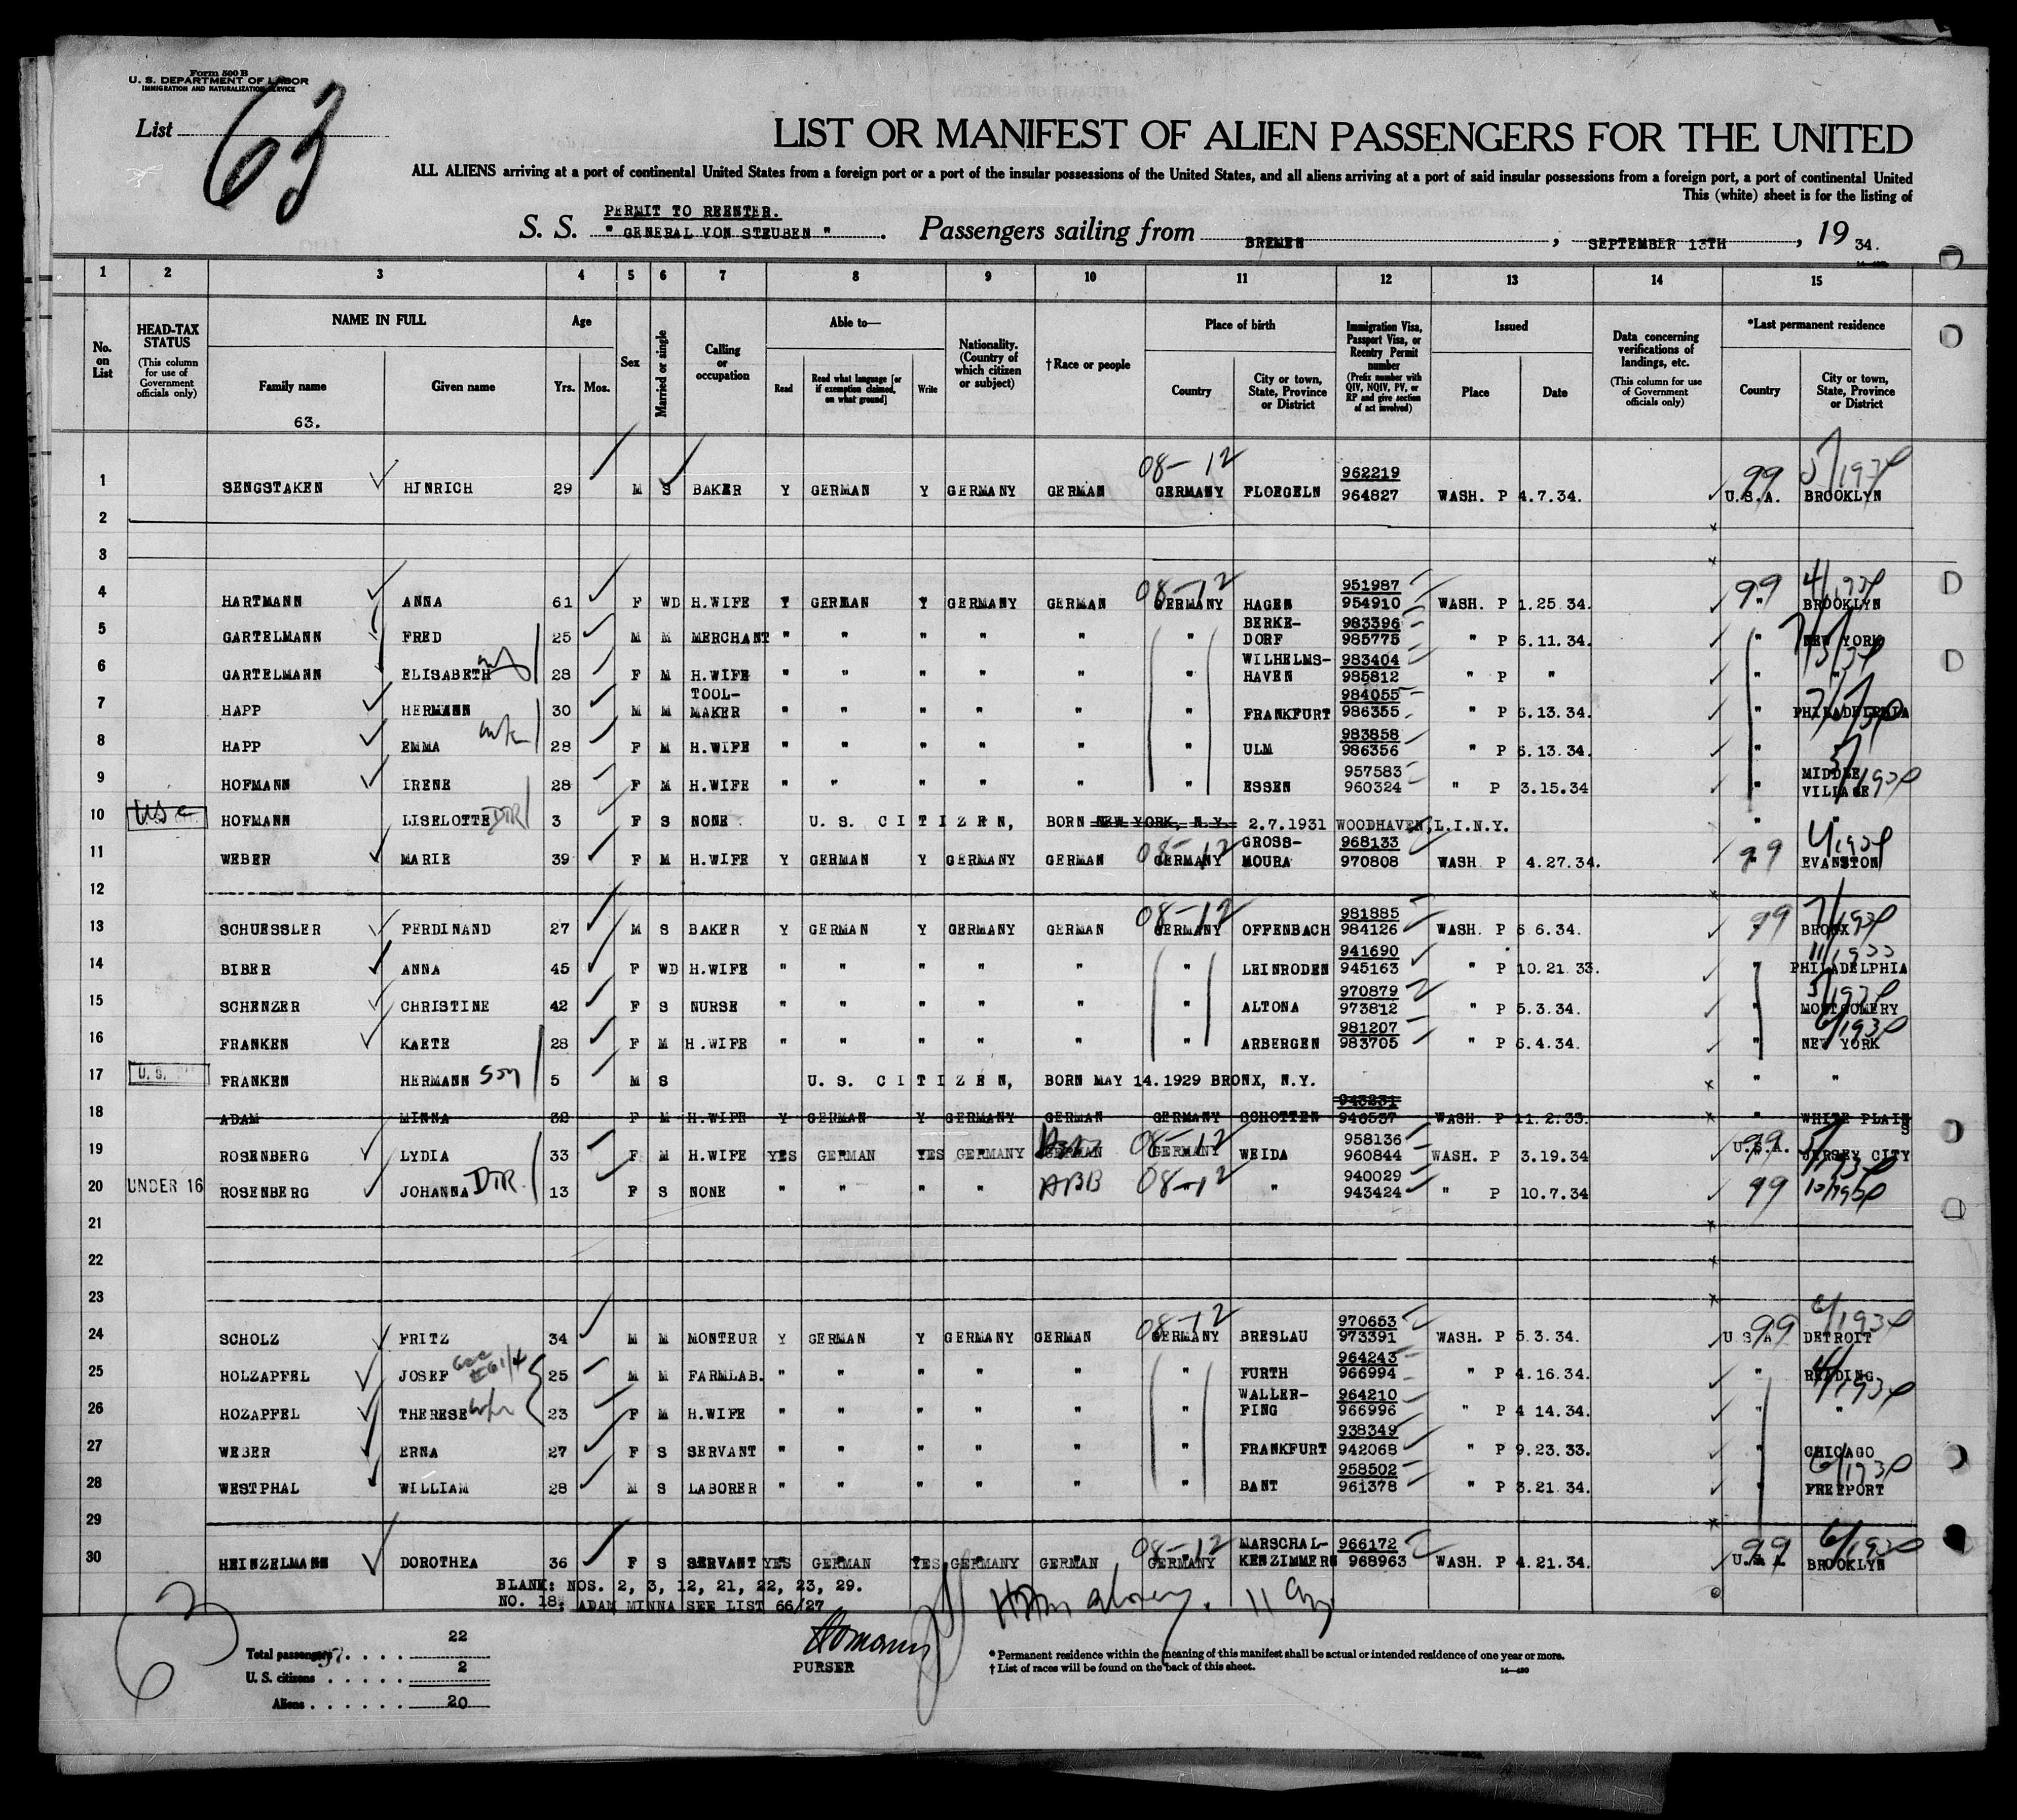 Form 500 B
U. S. DEPARTMENT OF LABOR
IMMIGRATION AND NATURALIZATION SERVICE
List 63
LIST OR MANIFEST OF ALIEN PASSENGERS FOR THE UNITED
ALL ALIENS arriving at a port of continental United States from a foreign port or a port of the insular possessions of the United States, and all aliens arriving at a port of said insular possessions from a foreign port, a port of continental United
This (white) sheet is for the listing of
PERMIT TO REENTER.
S. S. " GENERAL VON STEUBEN " . Passengers sailing from BREMEN , SEPTEMBER 13TH , 19 34.
1 2 3 4 5 6 7 8 9 10 11 12 13 14 15
No. on List
HEAD-TAX STATUS (This column for use of Government officials only)
NAME IN FULL
Family name
Given name
63.
Age
Yrs. Mos.
Sex
Married or single
Calling or occupation
Able to—
Read
Read what language [or if exemption claimed, on what ground]
Write
Nationality. (Country of which citizen or subject)
† Race or people
Place of birth
Country
City or town, State, Province or District
Immigration Visa, Passport Visa, or Reentry Permit number (Prefix number with QIV, NQIV, PV, or RP and give section of act involved)
Issued
Place
Date
Data concerning verifications of landings, etc. (This column for use of Government officials only)
*Last permanent residence
Country
City or town, State, Province or District
08-12 962219 99 5/1934
1 SENGSTAKEN HINRICH 29 M S BAKER Y GERMAN Y GERMANY GERMAN GERMANY FLOEGELN 964827 WASH. P 4.7.34. U.S.A. BROOKLYN
2
3
08-12 951987 99 4/1934
4 HARTMANN ANNA 61 F WD H.WIFE Y GERMAN Y GERMANY GERMAN GERMANY HAGEN 954910 WASH. P 1.25 34. " BROOKLYN
BERKE- 983396
5 GARTELMANN FRED 25 M M MERCHANT " " " " " " DORF 985775 " P 6.11.34. " NEW YORK
WILHELMS- 983404
6 GARTELMANN ELISABETH 28 F M H.WIFE " " " " " " HAVEN 985812 " P " " "
TOOL- 984055
7 HAPP HERMANN 30 M M MAKER " " " " " " FRANKFURT 986355 " P 6.13.34. " PHILADELPHIA
983858
8 HAPP EMMA 28 F M H.WIFE " " " " " " ULM 986356 " P 6.13.34. "
957583 MIDDLE
9 HOFMANN IRENE 28 F M H.WIFE " " " " " " ESSEN 960324 " P 3.15.34 " VILLAGE
10 USC HOFMANN LISELOTTE DTR 3 F S NONE U. S. CITIZEN, BORN NEW YORK, N.Y. 2.7.1931 WOODHAVEN, L.I.N.Y. " "
08-12 GROSS- 968133 4/1934
11 WEBER MARIE 39 F M H.WIFE Y GERMAN Y GERMANY GERMAN GERMANY MOURA 970808 WASH P 4.27.34. 99 EVANSTON
12
08-12 981885 7/1934
13 SCHUESSLER FERDINAND 27 M S BAKER Y GERMAN Y GERMANY GERMAN GERMANY OFFENBACH 984126 WASH. P 6 6.34. 99 BRONX
941690 11/1933
14 BIBER ANNA 45 F WD H.WIFE " " " " " " LEINRODEN 945163 " P 10.21 33. " PHILADELPHIA
970879 5/1934
15 SCHENZER CHRISTINE 42 F S NURSE " " " " " " ALTONA 973812 " P 5.3.34. " MONTGOMERY
981207 6/1934
16 FRANKEN KAETE 28 F M H.WIFE " " " " " " ARBERGEN 983705 " P 6.4.34. " NEW YORK
17 U. S. FRANKEN HERMANN son 5 M S U. S. CITIZEN, BORN MAY 14.1929 BRONX, N.Y. " "
943231
18 ADAM MINNA 32 F M H.WIFE Y GERMAN Y GERMANY GERMAN GERMANY SCHOTTEN 946537 WASH. P 11.2.33. " WHITE PLAINS
08-12 958136 99
19 ROSENBERG LYDIA 33 F M H.WIFE YES GERMAN YES GERMANY GERMAN GERMANY WEIDA 960844 WASH. P 3.19.34 U.S.A. JERSEY CITY
940029
20 UNDER 16 ROSENBERG JOHANNA DTR 13 F S NONE " " " " 08-12 " 943424 " P 10.7.34 99 10/1934
21
22
23
08-12 970653 99 6/1934
24 SCHOLZ FRITZ 34 M M MONTEUR Y GERMAN Y GERMANY GERMAN GERMANY BRESLAU 973391 WASH. P 5.3.34. U.S.A. DETROIT
964243
25 HOLZAPFEL JOSEF 25 M M FARMLAB. " " " " " " FURTH 966994 " P 4.16.34. " READING
WALLER- 964210 4/1934
26 HOZAPFEL THERESE 23 F M H.WIFE " " " " " " FING 966996 " P 4 14.34. " "
938349
27 WEBER ERNA 27 F S SERVANT " " " " " " FRANKFURT 942068 " P 9.23.33. CHICAGO
958502 6/1934
28 WESTPHAL WILLIAM 28 M S LABORER " " " " " " BANT 961378 " P 3.21.34. " FREEPORT
29
08-12 MARSCHAL- 966172 99 6/1934
30 HEINZELMANN DOROTHEA 36 F S SERVANT YES GERMAN YES GERMANY GERMAN GERMANY KENZIMMERN 968963 WASH. P 4.21.34. U.S.A. BROOKLYN
BLANK: NOS. 2, 3, 12, 21, 22, 23, 29.
NO. 18, ADAM MINNA SEE LIST 66/27
63
Total passengers 22
U. S. citizens 2
Aliens 20
PURSER
* Permanent residence within the meaning of this manifest shall be actual or intended residence of one year or more.
† List of races will be found on the back of this sheet.
14—480